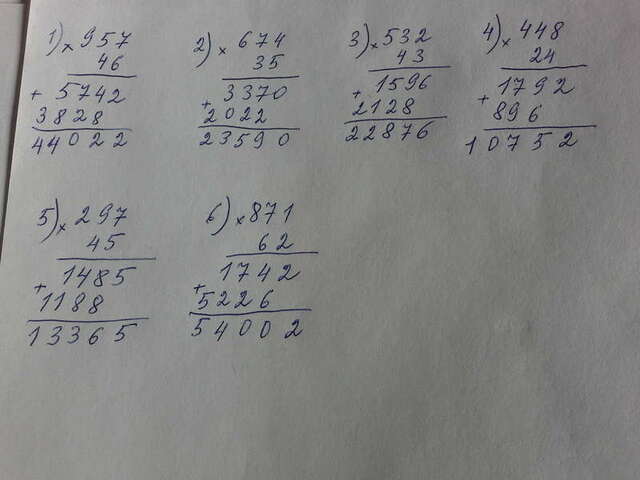 1) × 957
46
+ 5742
3828
44022
2) × 674
35
+ 3370
2022
23590
3) × 532
43
+ 1596
2128
22876
4) × 448
24
+ 1792
896
10752
5) × 297
45
+ 1485
1188
13365
6) × 871
62
+ 1742
5226
54002